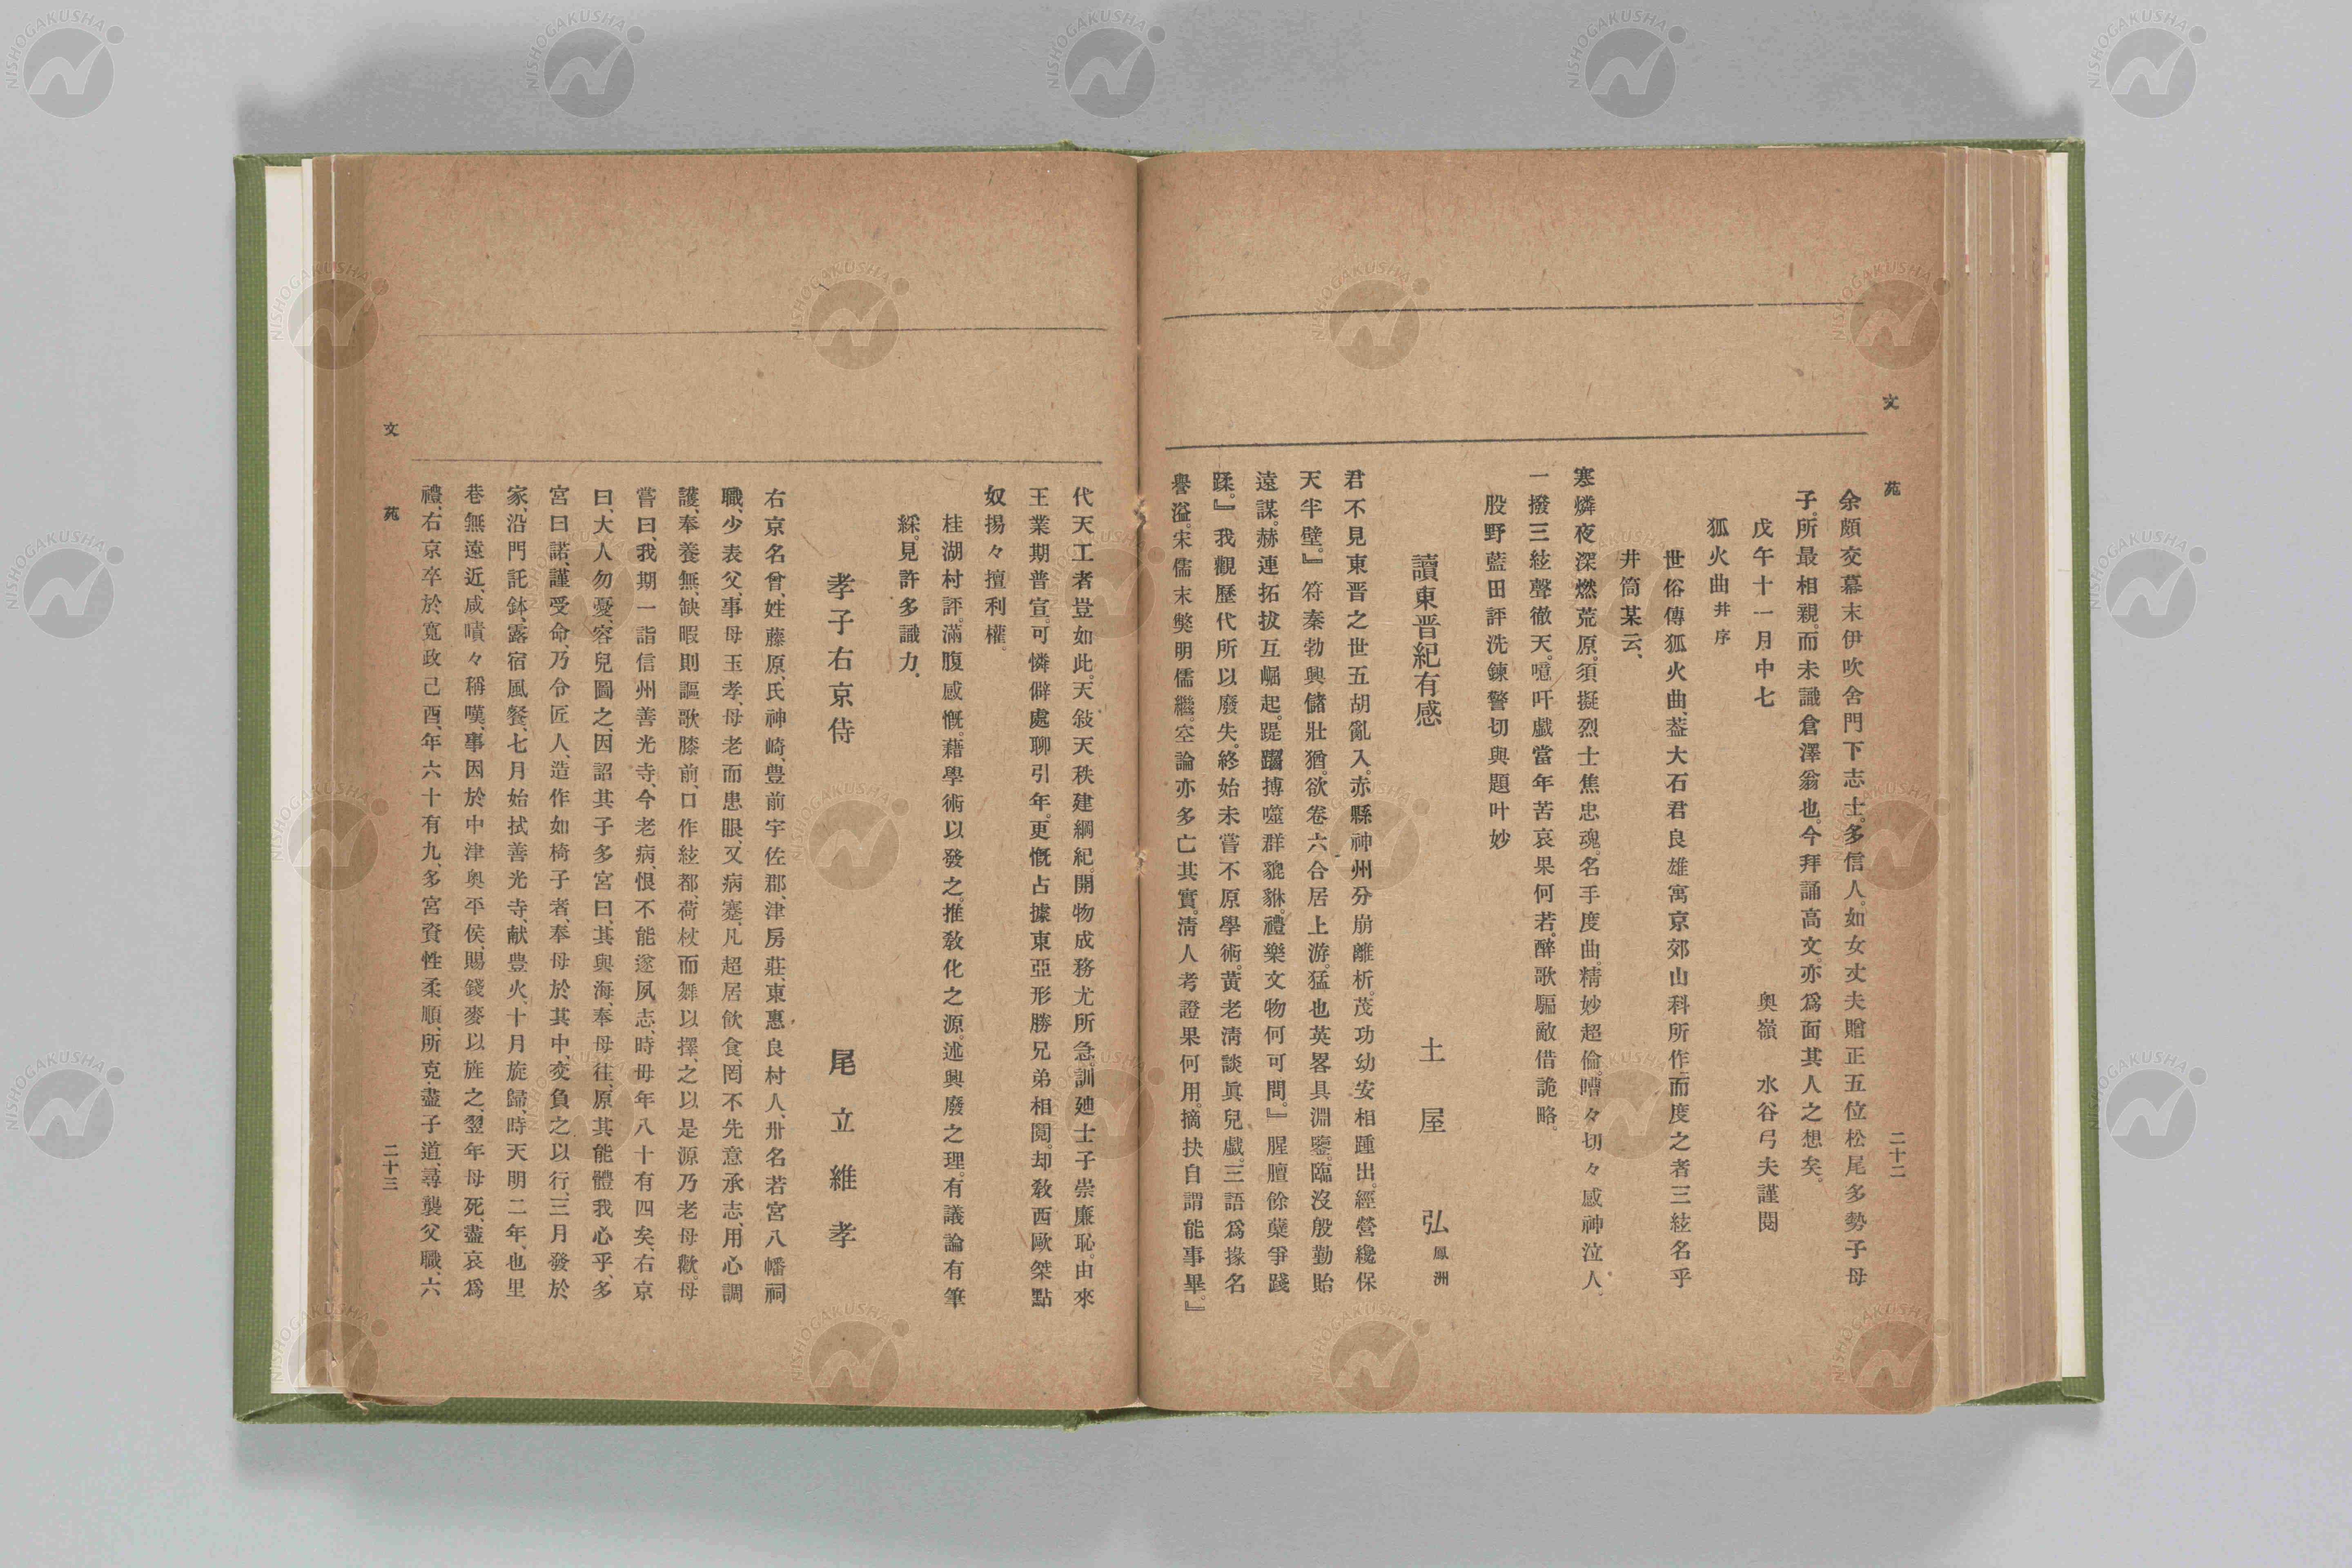 文苑
二十二
余頗交幕末伊吹舍門下志士。多信人。如女丈夫贈正五位松尾多勢子母
子。所最相親。而未識倉澤翁也。今拜誦高文。亦爲面其人之想矣。
戊午十一月中七
奥嶺 水谷弓夫謹閱
狐火曲井序
世俗傳狐火曲、葢大石君良雄寓京郊山科所作、而度之者三絃名乎
井筒某云、
寒燐夜深燃荒原。須擬烈士焦忠魂。名手度曲。精妙超倫。嘈々切々感神泣人、
一撥三絃聲徹天。噫吁戲當年苦哀果何若。醉歌驅敵借詭略。
股野藍田評洗鍊警切與題叶妙
讀東晋紀有感
土屋弘鳳洲
君不見東晋之世五胡亂入。赤縣神州分崩離析。茂功幼安相踵出。經營纔保
天半壁。』符秦勃興儲壯猶。欲卷六合居上游。猛也英畧具淵鑒。臨沒殷勤貽
遠謀。赫連拓拔互崛起。踶躢搏噬群貔貅。禮樂文物何可問。』腥膻餘蘖爭踐
蹂。』我觀歷代所以廢失。終始未嘗不原學術。黃老淸談眞兒戲。三語爲掾名
譽溢。宋儒末獘明儒繼。空論亦多亡其實。淸人考證果何用。摘抉自謂能事畢。』
代天工者豈如此。天敍天秩建綱紀。開物成務尤所急。訓廸士子崇廉恥。由來
王業期普宣。可憐僻處聊引年。更慨占據東亞形勝兄弟相鬩。却敎西歐桀黠
奴揚々擅利權。
桂湖村評。滿腹感慨。藉學術以發之。推敎化之源。述興廢之理。有議論有筆
綵。見許多識力、
孝子右京侍
尾立維孝
右京名曾、姓藤原、氏神崎、豊前宇佐郡、津房莊、東惠良村人、卅名若宮八幡祠
職、少表父、事母玉孝、母老而患眼、又病蹇、凡超居飮食、罔不先意承志、用心調
護、奉養無缺、暇則謳歌膝前、口作絃都、荷杖而舞、以擇之以是源乃老母歡。母
嘗曰、我期一詣信州善光寺、今老病、恨不能遂夙志、時毋年八十有四矣、右京
曰、大人勿憂、容兒圖之、因詔其子多宮曰、其與海、奉母往、原其能體我心乎、多
宮曰、諾、謹受命、乃令匠人、造作如椅子者、奉母於其中、交負之以行、三月發於
家、沿門託鉢、露宿風餐、七月始拭善光寺、献豊火、十月旋歸、時天明二年、也里
巷無遠近、咸嘖々稱嘆、事因於中津奥平侯、賜錢麥以旌之、翌年母死、盡哀爲
禮、右京卒於、寬政己酉、年六十有九、多宮資性柔順、所克盡子道、尋襲父職、六
文苑
二十三